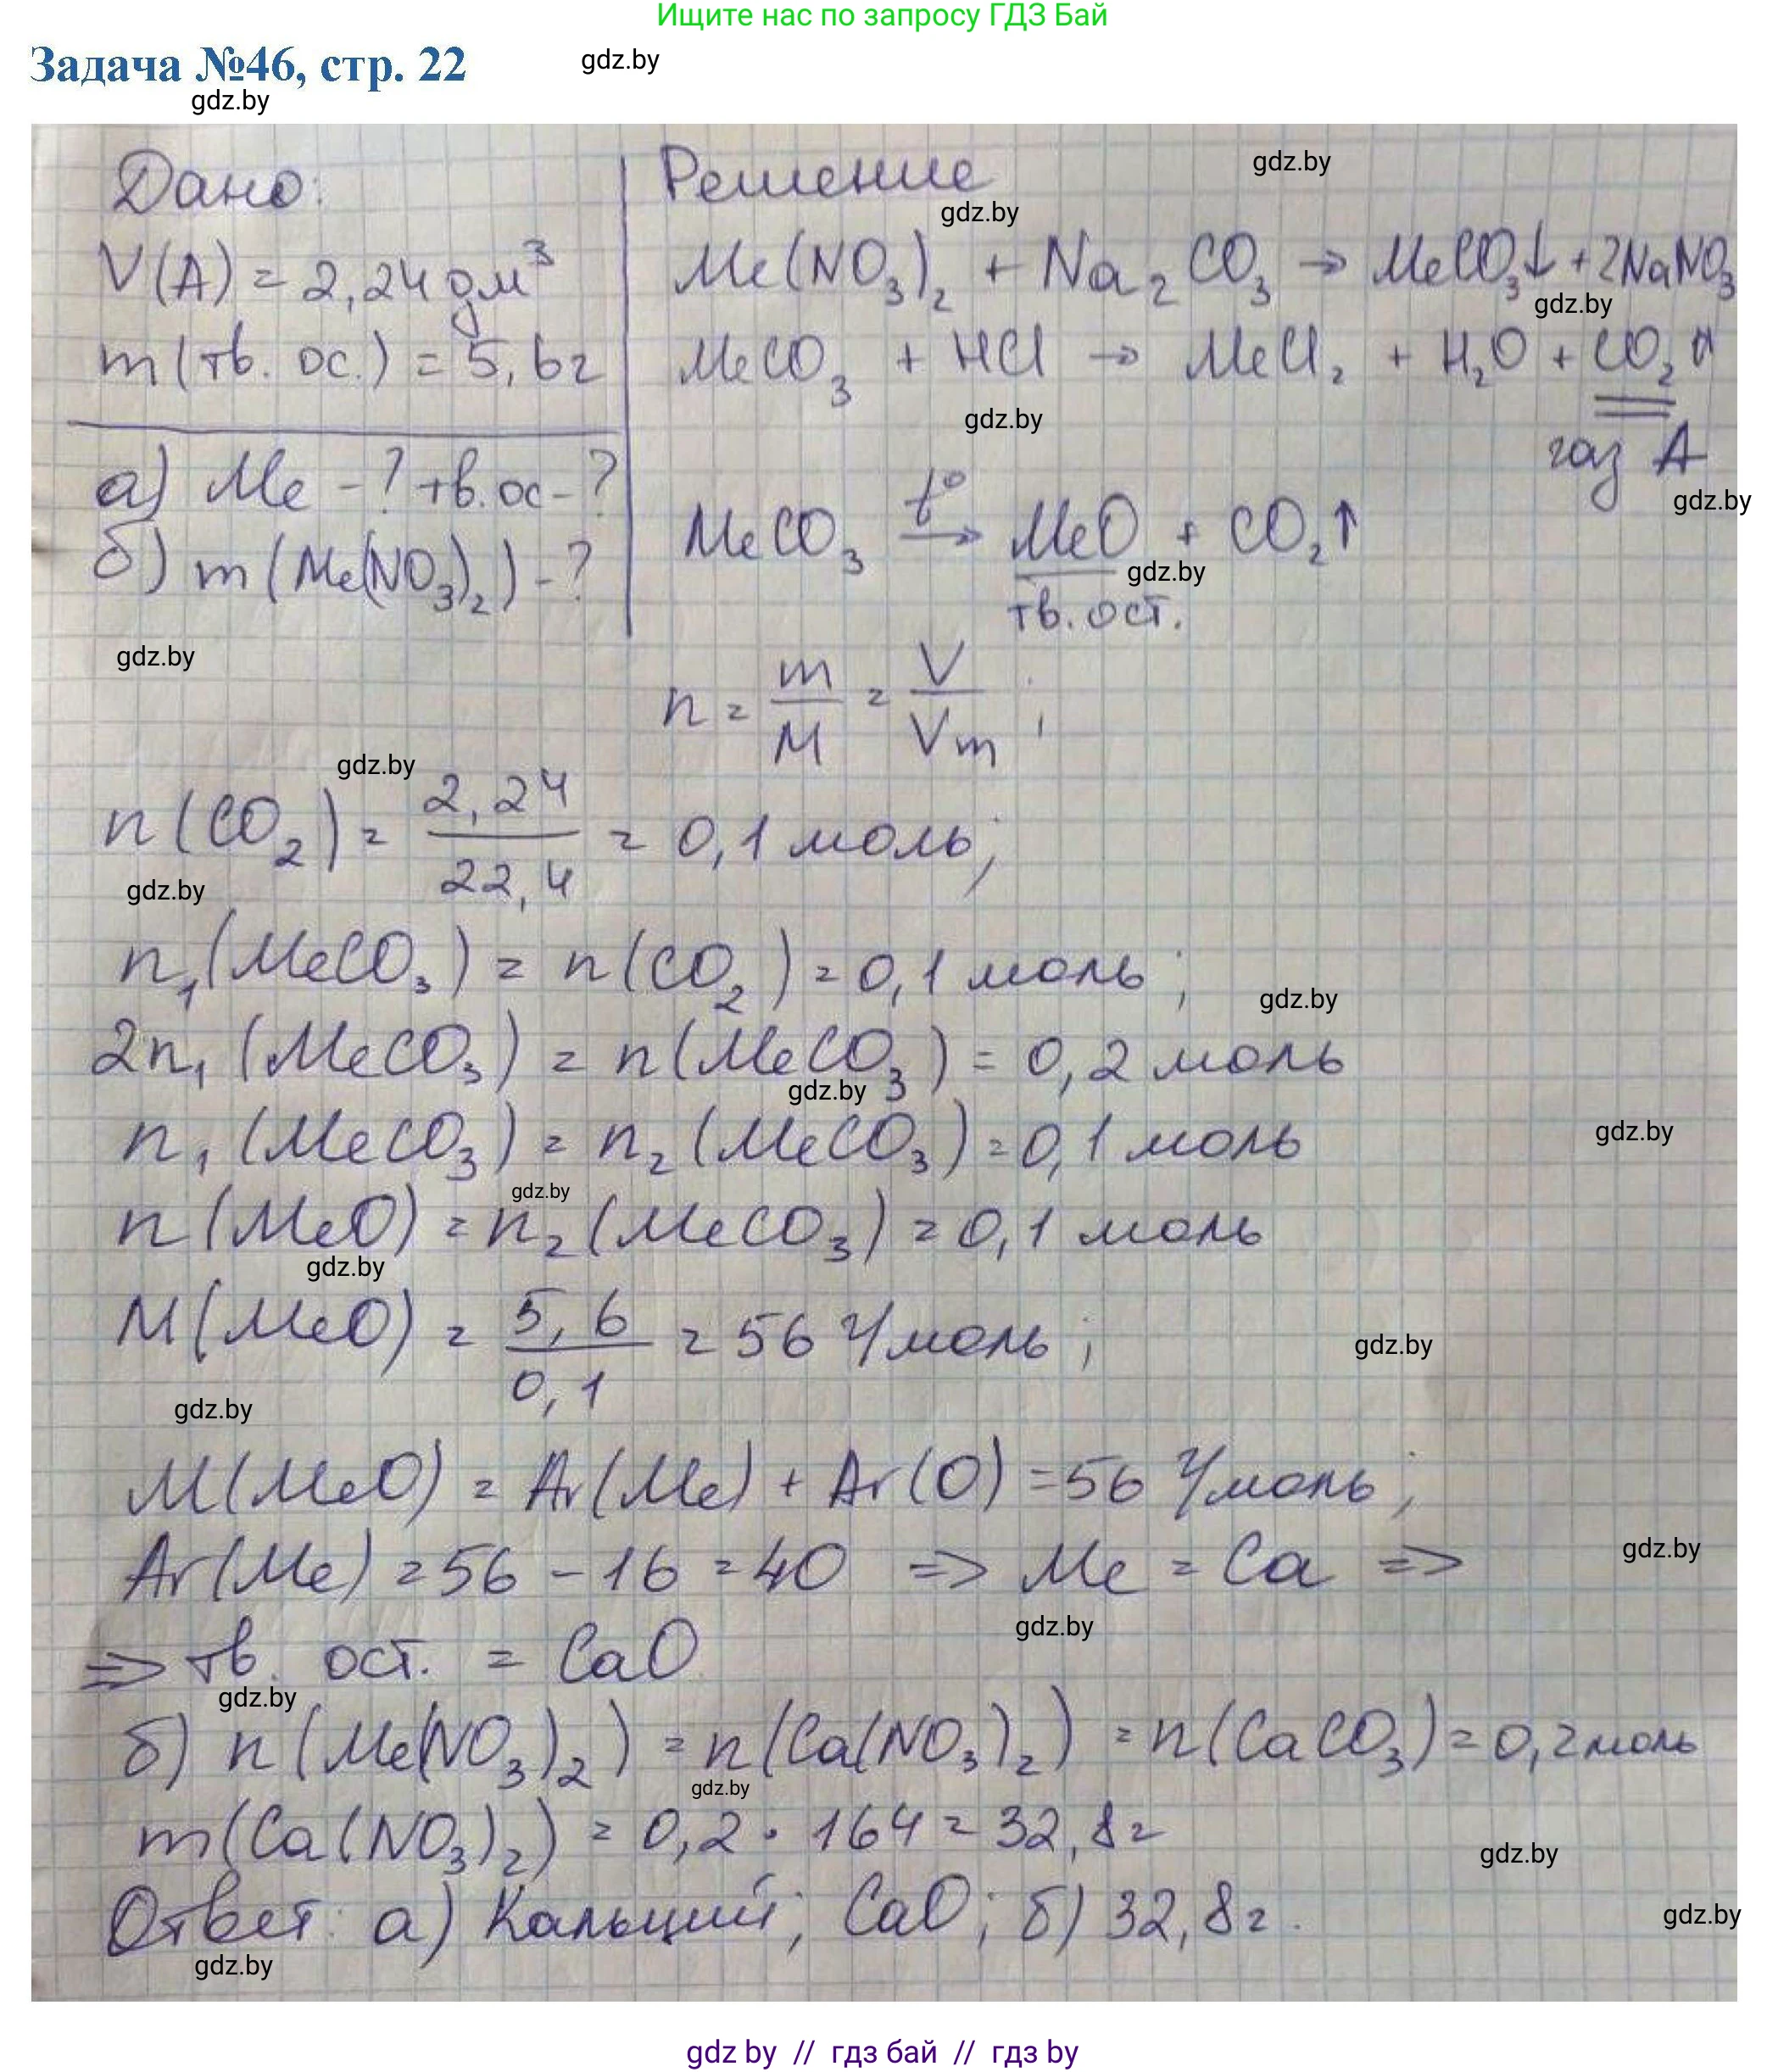 Ищите нас по запросу ГДЗ Бай
Задача №46, стр. 22
gdz.by
gdz.by
Дано:
V(A) = 2,24 дм³
m(тв. ос.) = 5,6г
а) Me -? тв. ос -?
б) m(Me(NO₃)₂) -?
Решение
gdz.by
gdz.by
Me(NO₃)₂ + Na₂CO₃ → MeCO₃↓ + 2NaNO₃
gdz.by
MeCO₃ + HCl → MeCl₂ + H₂O + CO₂↑
gdz.by
газ A
gdz.by
MeCO₃ t° → MeO + CO₂↑
gdz.by
тв. ост.
gdz.by
n = m/M = V/Vm ;
gdz.by
n(CO₂) = 2,24/22,4 = 0,1 моль;
gdz.by
n₁(MeCO₃) = n(CO₂) = 0,1 моль ;
gdz.by
2n₁(MeCO₃) = n(MeCO₃) = 0,2 моль
gdz.by
n₁(MeCO₃) = n₂(MeCO₃) = 0,1 моль
gdz.by
gdz.by
n(MeO) = n₂(MeCO₃) = 0,1 моль
gdz.by
M(MeO) = 5,6/0,1 = 56 г/моль ;
gdz.by
gdz.by
M(MeO) = Ar(Me) + Ar(O) = 56 г/моль ;
gdz.by
Ar(Me) = 56 - 16 = 40 => Me = Ca =>
gdz.by
=> тв. ост. = CaO
gdz.by
б) n(Me(NO₃)₂) = n(Ca(NO₃)₂) = n(CaCO₃) = 0,2 моль
gdz.by
m(Ca(NO₃)₂) = 0,2 · 164 = 32,8 г
gdz.by
Ответ: а) Кальций; CaO; б) 32,8 г.
gdz.by
gdz.by
gdz by // гдз бай // гдз by